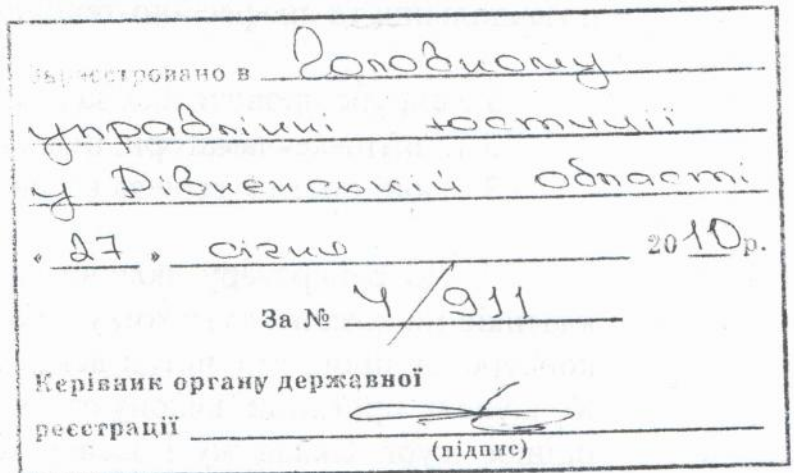 Зареєстровано в Головному
управлінні юстиції
у Рівненській області
" 27 " січня 2010р.
За № 4/911
Керівник органу державної
реєстрації
(підпис)